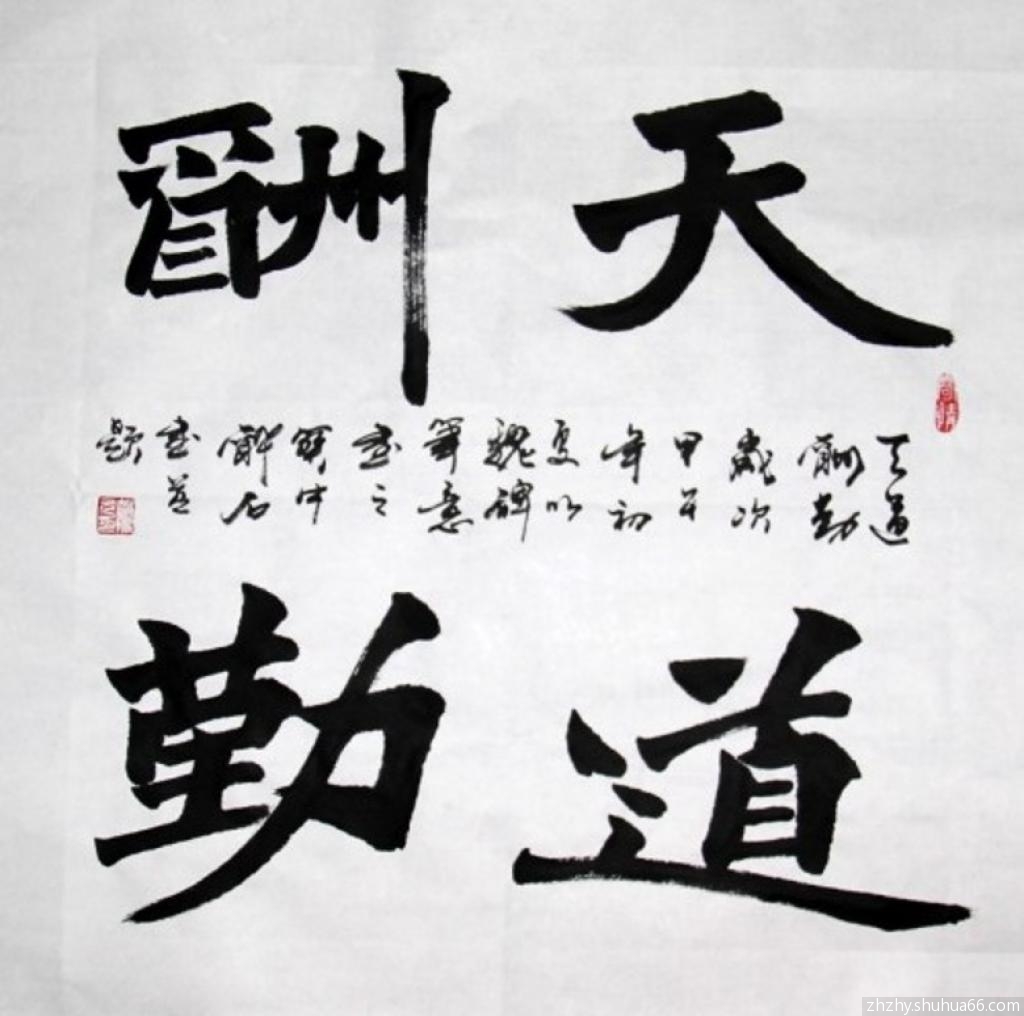 天道
酬勤
天道
酬勤
歲次
甲午
年初
夏以
魏碑
筆意
書之
解石
書並
題
zhzhy.shuhua66.com